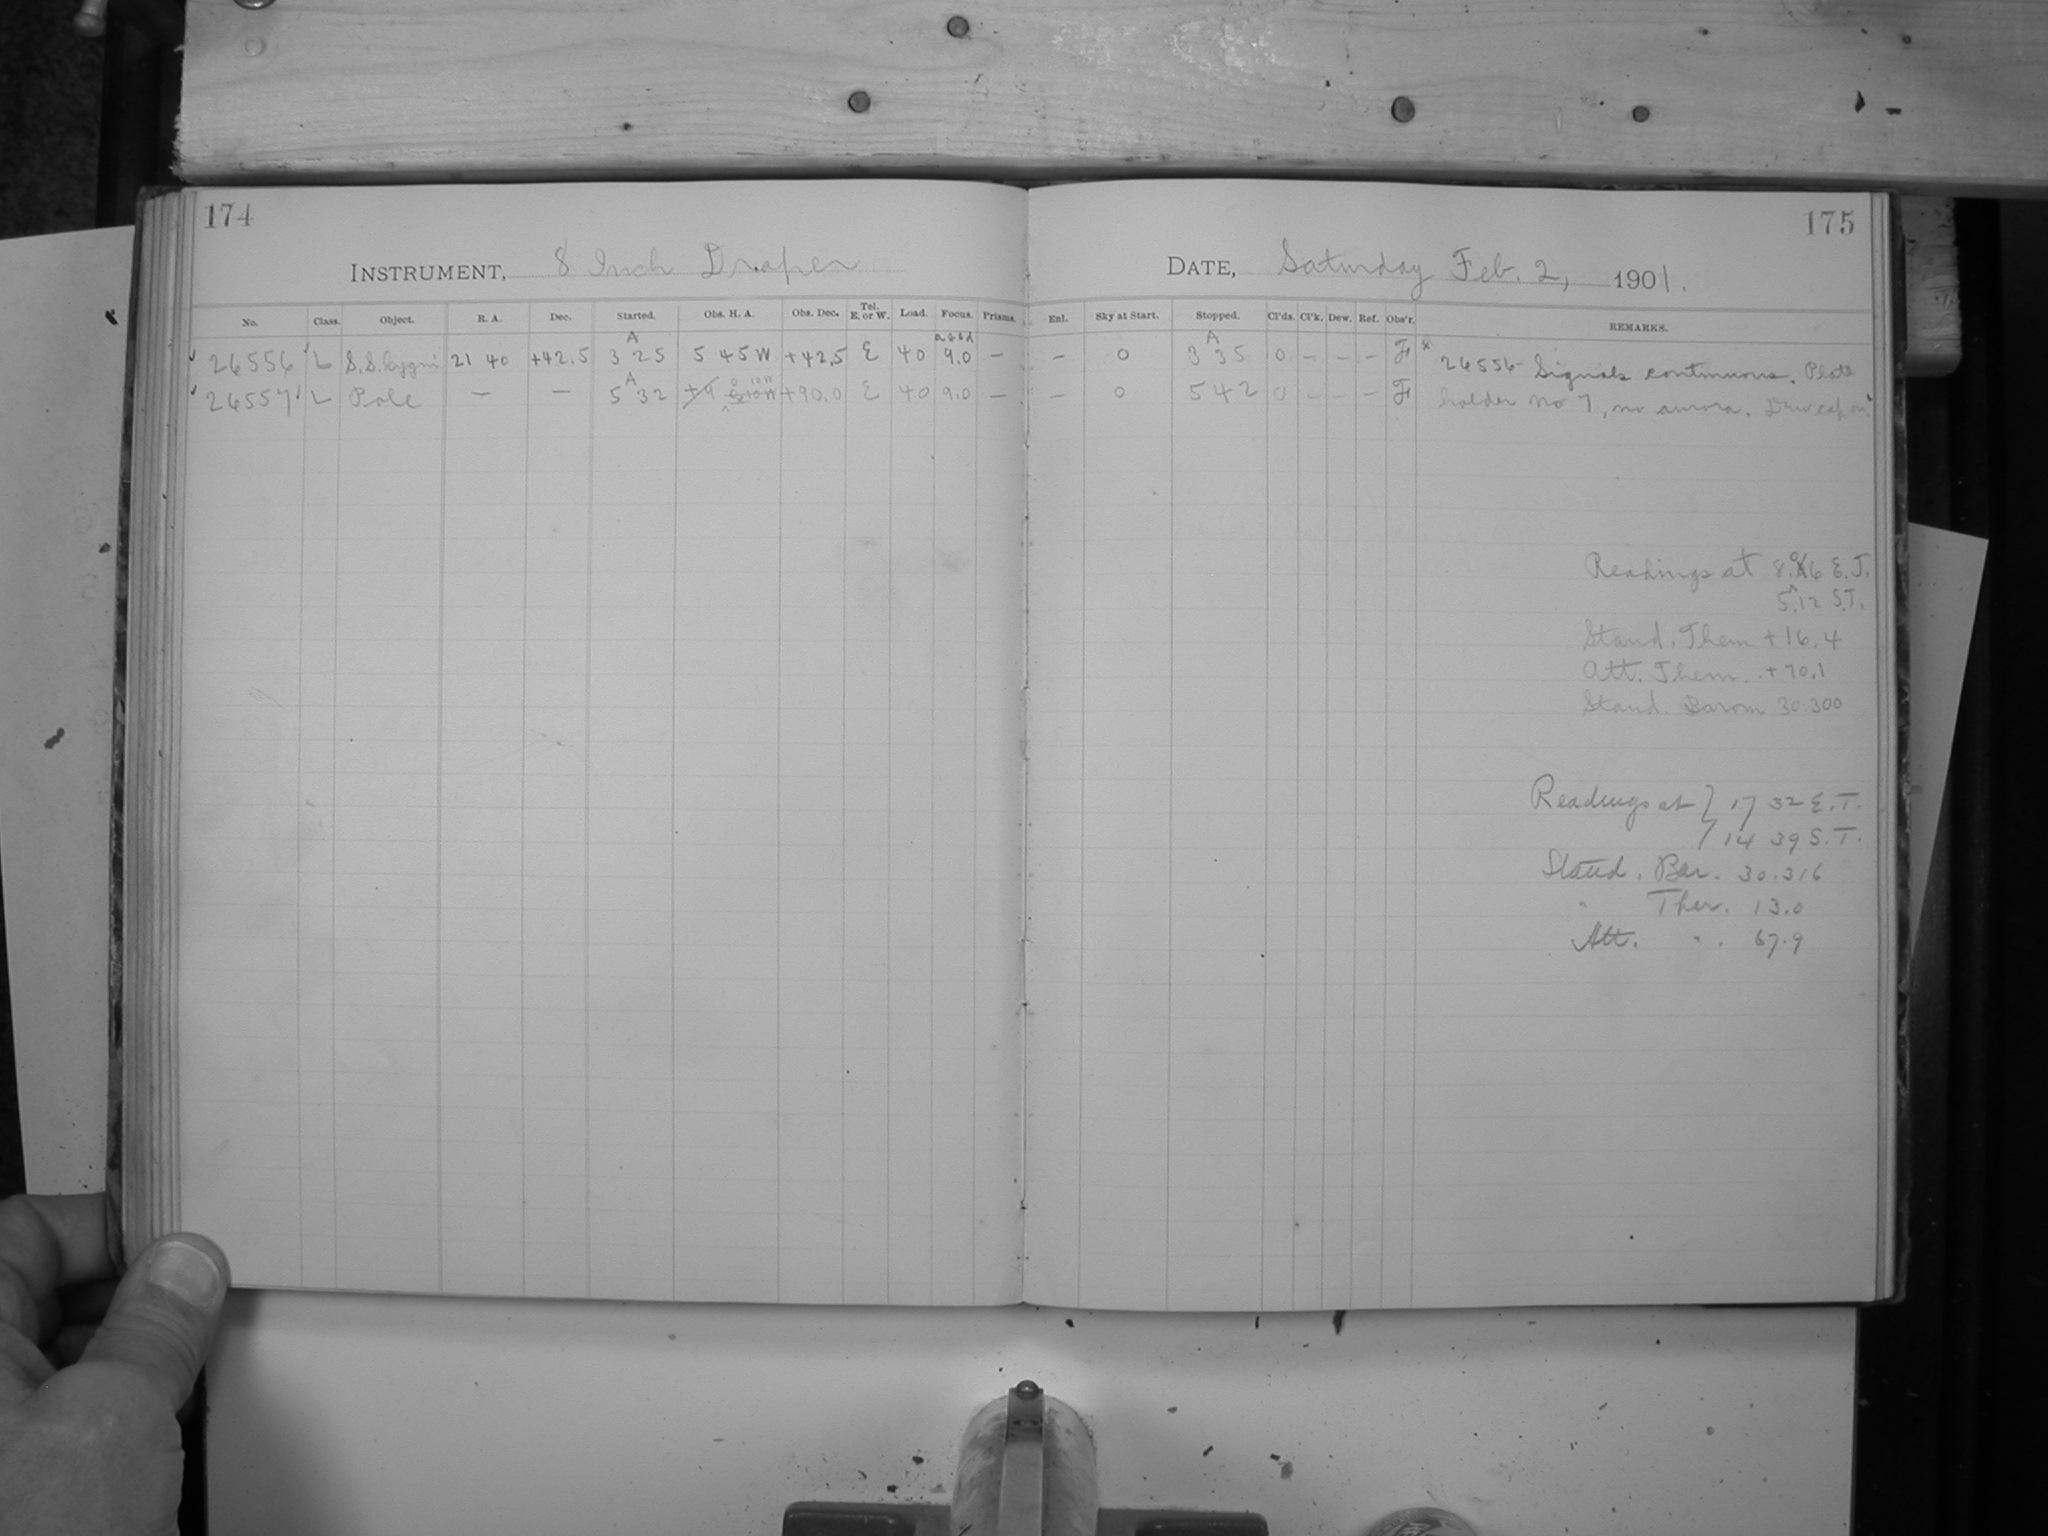 174
175
INSTRUMENT, 8 Inch Draper
DATE, Saturday Feb. 2, 1901.
No. Class. Object. R. A. Dec. Started. Obs. H. A. Obs. Dec. Tel. E. or W. Load. Focus. Prisms. Enl. Sky at Start. Stopped. Cl'ds. Cl'k. Dew. Ref. Obs'r. REMARKS.
26556 L S.S. Cygni 21 40 +42.5 A 3 25 5 45 W +42.5 E 40 9.0 — — 0 A 3 35 0 — — — F
26557 L Pole — — A 5 32 0 10 W +90.0 E 40 9.0 — — 0 5 42 0 — — — F
26556 Signals continuous. Plate
holder No 7, no aurora. Dew cap on.
Readings at 8. 6 E.T.
5.12 S.T.
Stand. Them +16.4
Att. Them. +70.1
Stand. Barom 30.300
Readings at } 17 32 E.T.
14 39 S.T.
Stand. Bar. 30.316
" Ther. 13.0
Att. " . 67.9